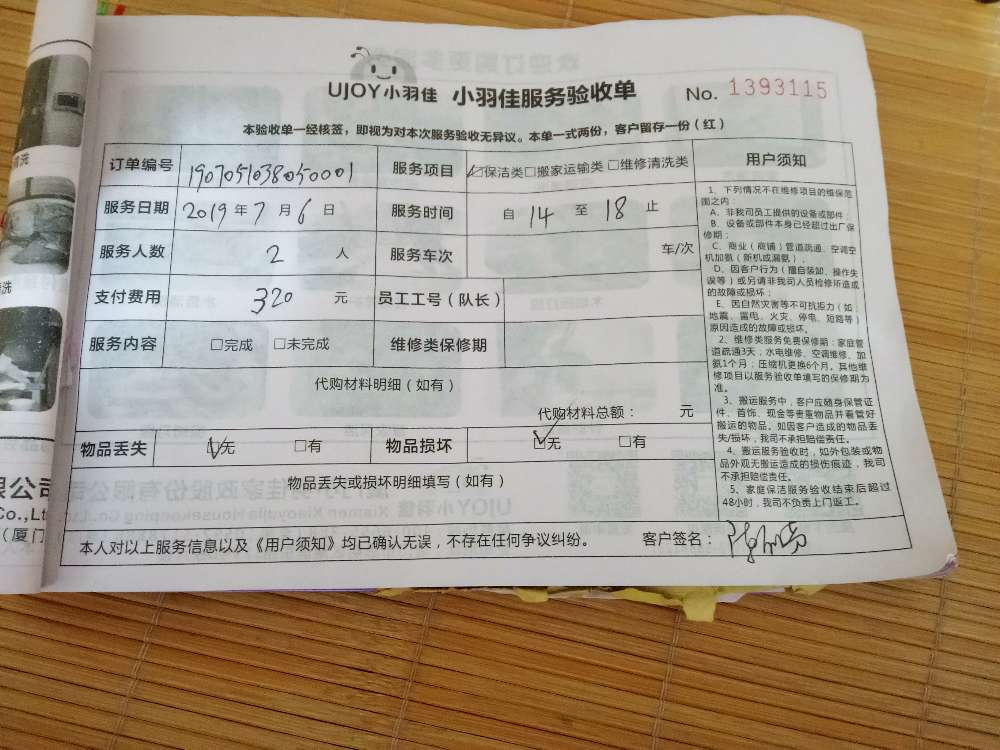 UJOY小羽佳 小羽佳服务验收单 No. 1393115
本验收单一经核签，即视为对本次服务验收无异议。本单一式两份，客户留存一份（红）
订单编号 1907051038050001 服务项目 ☑保洁类□搬家运输类□维修清洗类
服务日期 2019年7月6日 服务时间 自 14 至 18 止
服务人数 2 人 服务车次 车/次
支付费用 320 元 员工工号（队长）
服务内容 □完成 □未完成 维修类保修期
代购材料明细（如有）
代购材料总额： 元
物品丢失 ☑无 □有 物品损坏 ☑无 □有
物品丢失或损坏明细填写（如有）
本人对以上服务信息以及《用户须知》均已确认无误，不存在任何争议纠纷。 客户签名：
用户须知
1、下列情况不在维修项目的维保范
围之内：
A、非我司员工提供的设备或部件
B、设备或部件本身已经超过出厂保
修期；
C、商业（商铺）管道疏通、空调空
机加氨（新机或漏氨）、
D、因客户行为（擅自装卸、操作失
误等）或另请非我司人员检修所造成
的故障或损坏；
E、因自然灾害等不可抗拒力（如
地震、雷电、火灾、停电、短路等）
原因造成的故障或损坏。
2、维修类服务免费保修期：家庭管
道疏通3天；水电维修、空调维修、加
氨1个月；压缩机更换6个月。其他维
修项目以服务验收单填写的保修期为
准。
3、搬运服务中，客户应随身保管证
件、首饰、现金等贵重物品并看管好
搬运的物品。如因客户造成的物品丢
失/损坏，我司不承担赔偿责任。
4、搬运服务验收时，如外包装或物
品外观无搬运造成的损伤痕迹，我司
不承担赔偿责任。
5、家庭保洁服务验收结束后超过
48小时，我司不负责上门返工。
清洗
洗
限公司
Co.,Lt
（厦门